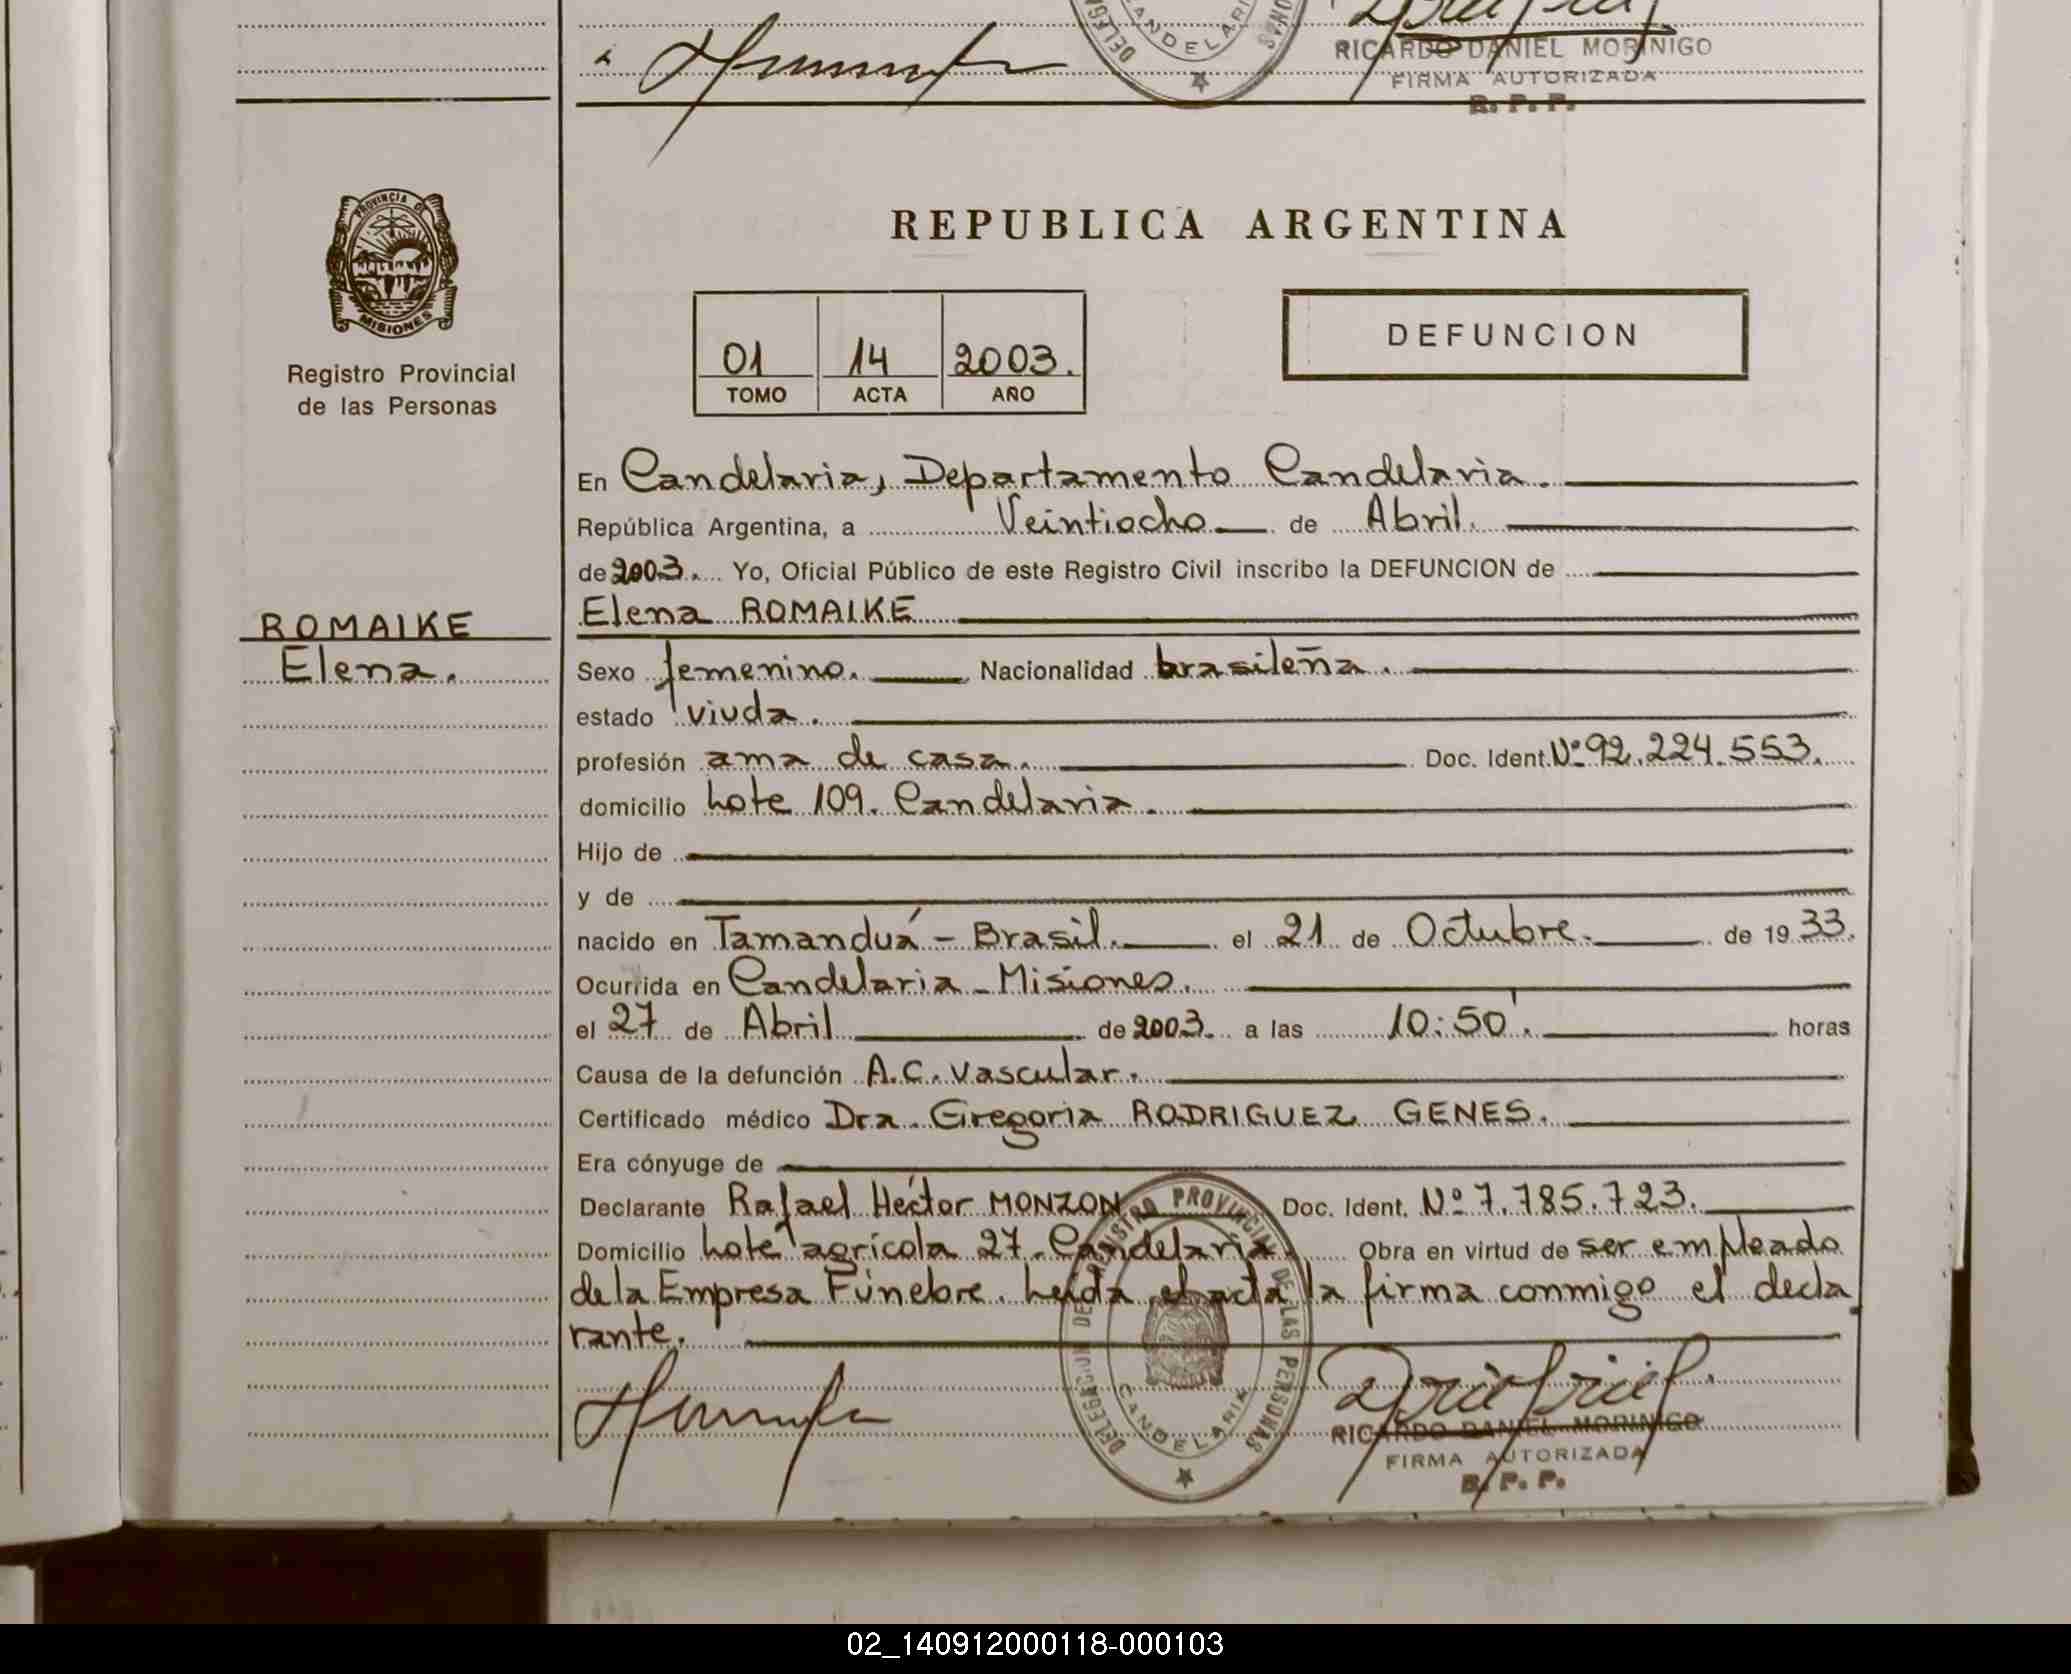 DELEGA
CANDELARI
ONAS
RICARDO DANIEL MORINIGO
FIRMA AUTORIZADA
R. P. P.
PROVINCIA DE
MISIONES
Registro Provincial
de las Personas
REPUBLICA ARGENTINA
01 14 2003.
TOMO ACTA AÑO
DEFUNCION
En Candelaria, Departamento Candelaria.
República Argentina, a Veintiocho de Abril.
de 2003. Yo, Oficial Público de este Registro Civil inscribo la DEFUNCION de
ROMAIKE
Elena.
Elena ROMAIKE
Sexo femenino. Nacionalidad brasileña.
estado viuda.
profesión ama de casa. Doc. Ident. Nº 92.224.553.
domicilio Lote 109. Candelaria.
Hijo de
y de
nacido en Tamanduá - Brasil. el 21 de Octubre. de 1933.
Ocurrida en Candelaria - Misiones.
el 27 de Abril de 2003. a las 10:50'. horas
Causa de la defunción A.C. Vascular.
Certificado médico Dra. Gregoria RODRIGUEZ GENES.
Era cónyuge de
Declarante Rafael Héctor MONZON Doc. Ident. Nº 7.785.723.
Domicilio Lote agrícola 27. Candelaria. Obra en virtud de ser empleado
de la Empresa Fúnebre. Leida el acta la firma conmigo el decla
rante.
DELEGACION DEL REGISTRO PROVINCIAL DE LAS PERSONAS
CANDELARIA
RICARDO DANIEL MORINIGO
FIRMA AUTORIZADA
R. P. P.
02_140912000118-000103